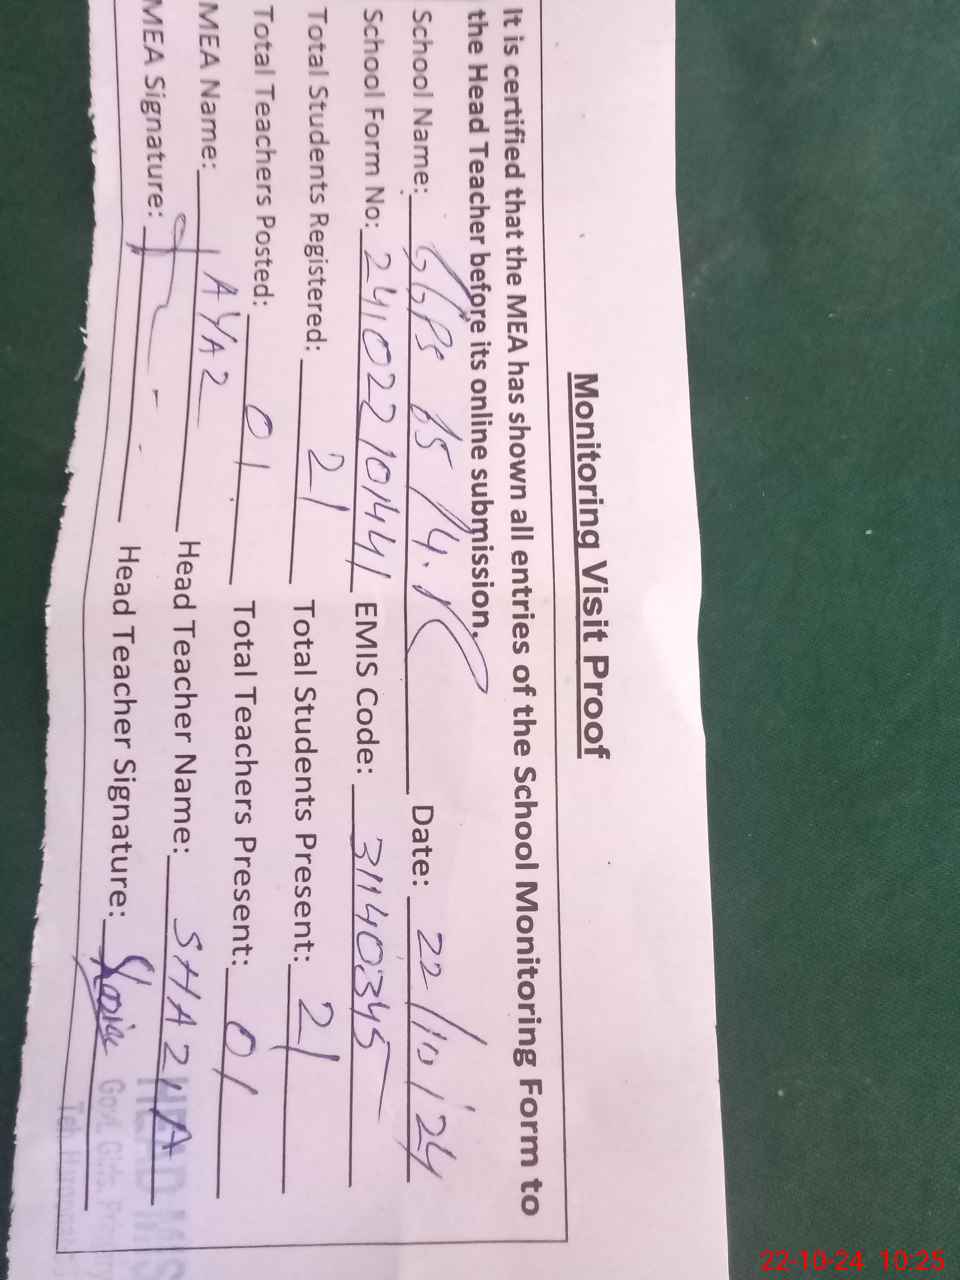 Monitoring Visit Proof
It is certified that the MEA has shown all entries of the School Monitoring Form to
the Head Teacher before its online submission.
School Name: GGPS 65/4.R Date: 22/10/24
School Form No: 241022101441 EMIS Code: 31140345
Total Students Registered: 21 Total Students Present: 21
Total Teachers Posted: 01 Total Teachers Present: 01
MEA Name: AYAZ Head Teacher Name: SHAZIA
MEA Signature: Head Teacher Signature: Shazia
HEAD MIS
Govt. Girls. Primary
Teh.
22-10-24 10:25